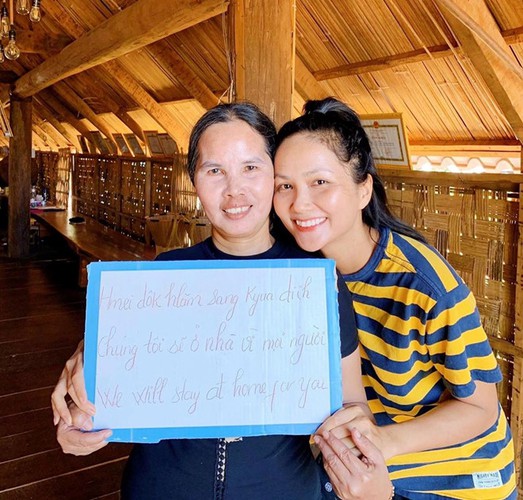 Hmei dôk hlăm sang Kyua dịch
Chúng tôi sẽ ở nhà vì mọi người
We will stay at home for you